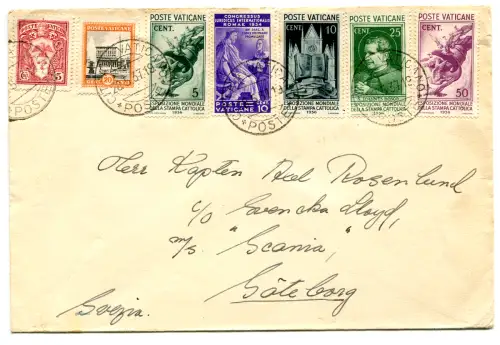 POSTE VATICANE
CENT. 5
ESPOSIZIONE MONDIALE
DELLA STAMPA CATTOLICA
1936
CONGRESSUS
IURIDICUS INTERNATIONALIS
ROMAE 1934
POSTE
VATICANE
CENT
10
POSTE VATICANE
CENT. 10
ESPOSIZIONE MONDIALE
DELLA STAMPA CATTOLICA
1936
POSTE VATICANE
CENT. 25
ESPOSIZIONE MONDIALE
DELLA STAMPA CATTOLICA
1936
POSTE VATICANE
CENT.
50
ESPOSIZIONE MONDIALE
DELLA STAMPA CATTOLICA
1936
Herr Kapten Axel Rosenlund
c/o Svenska Lloyd,
m/s. "Scania,"
Göteborg
Svezia.